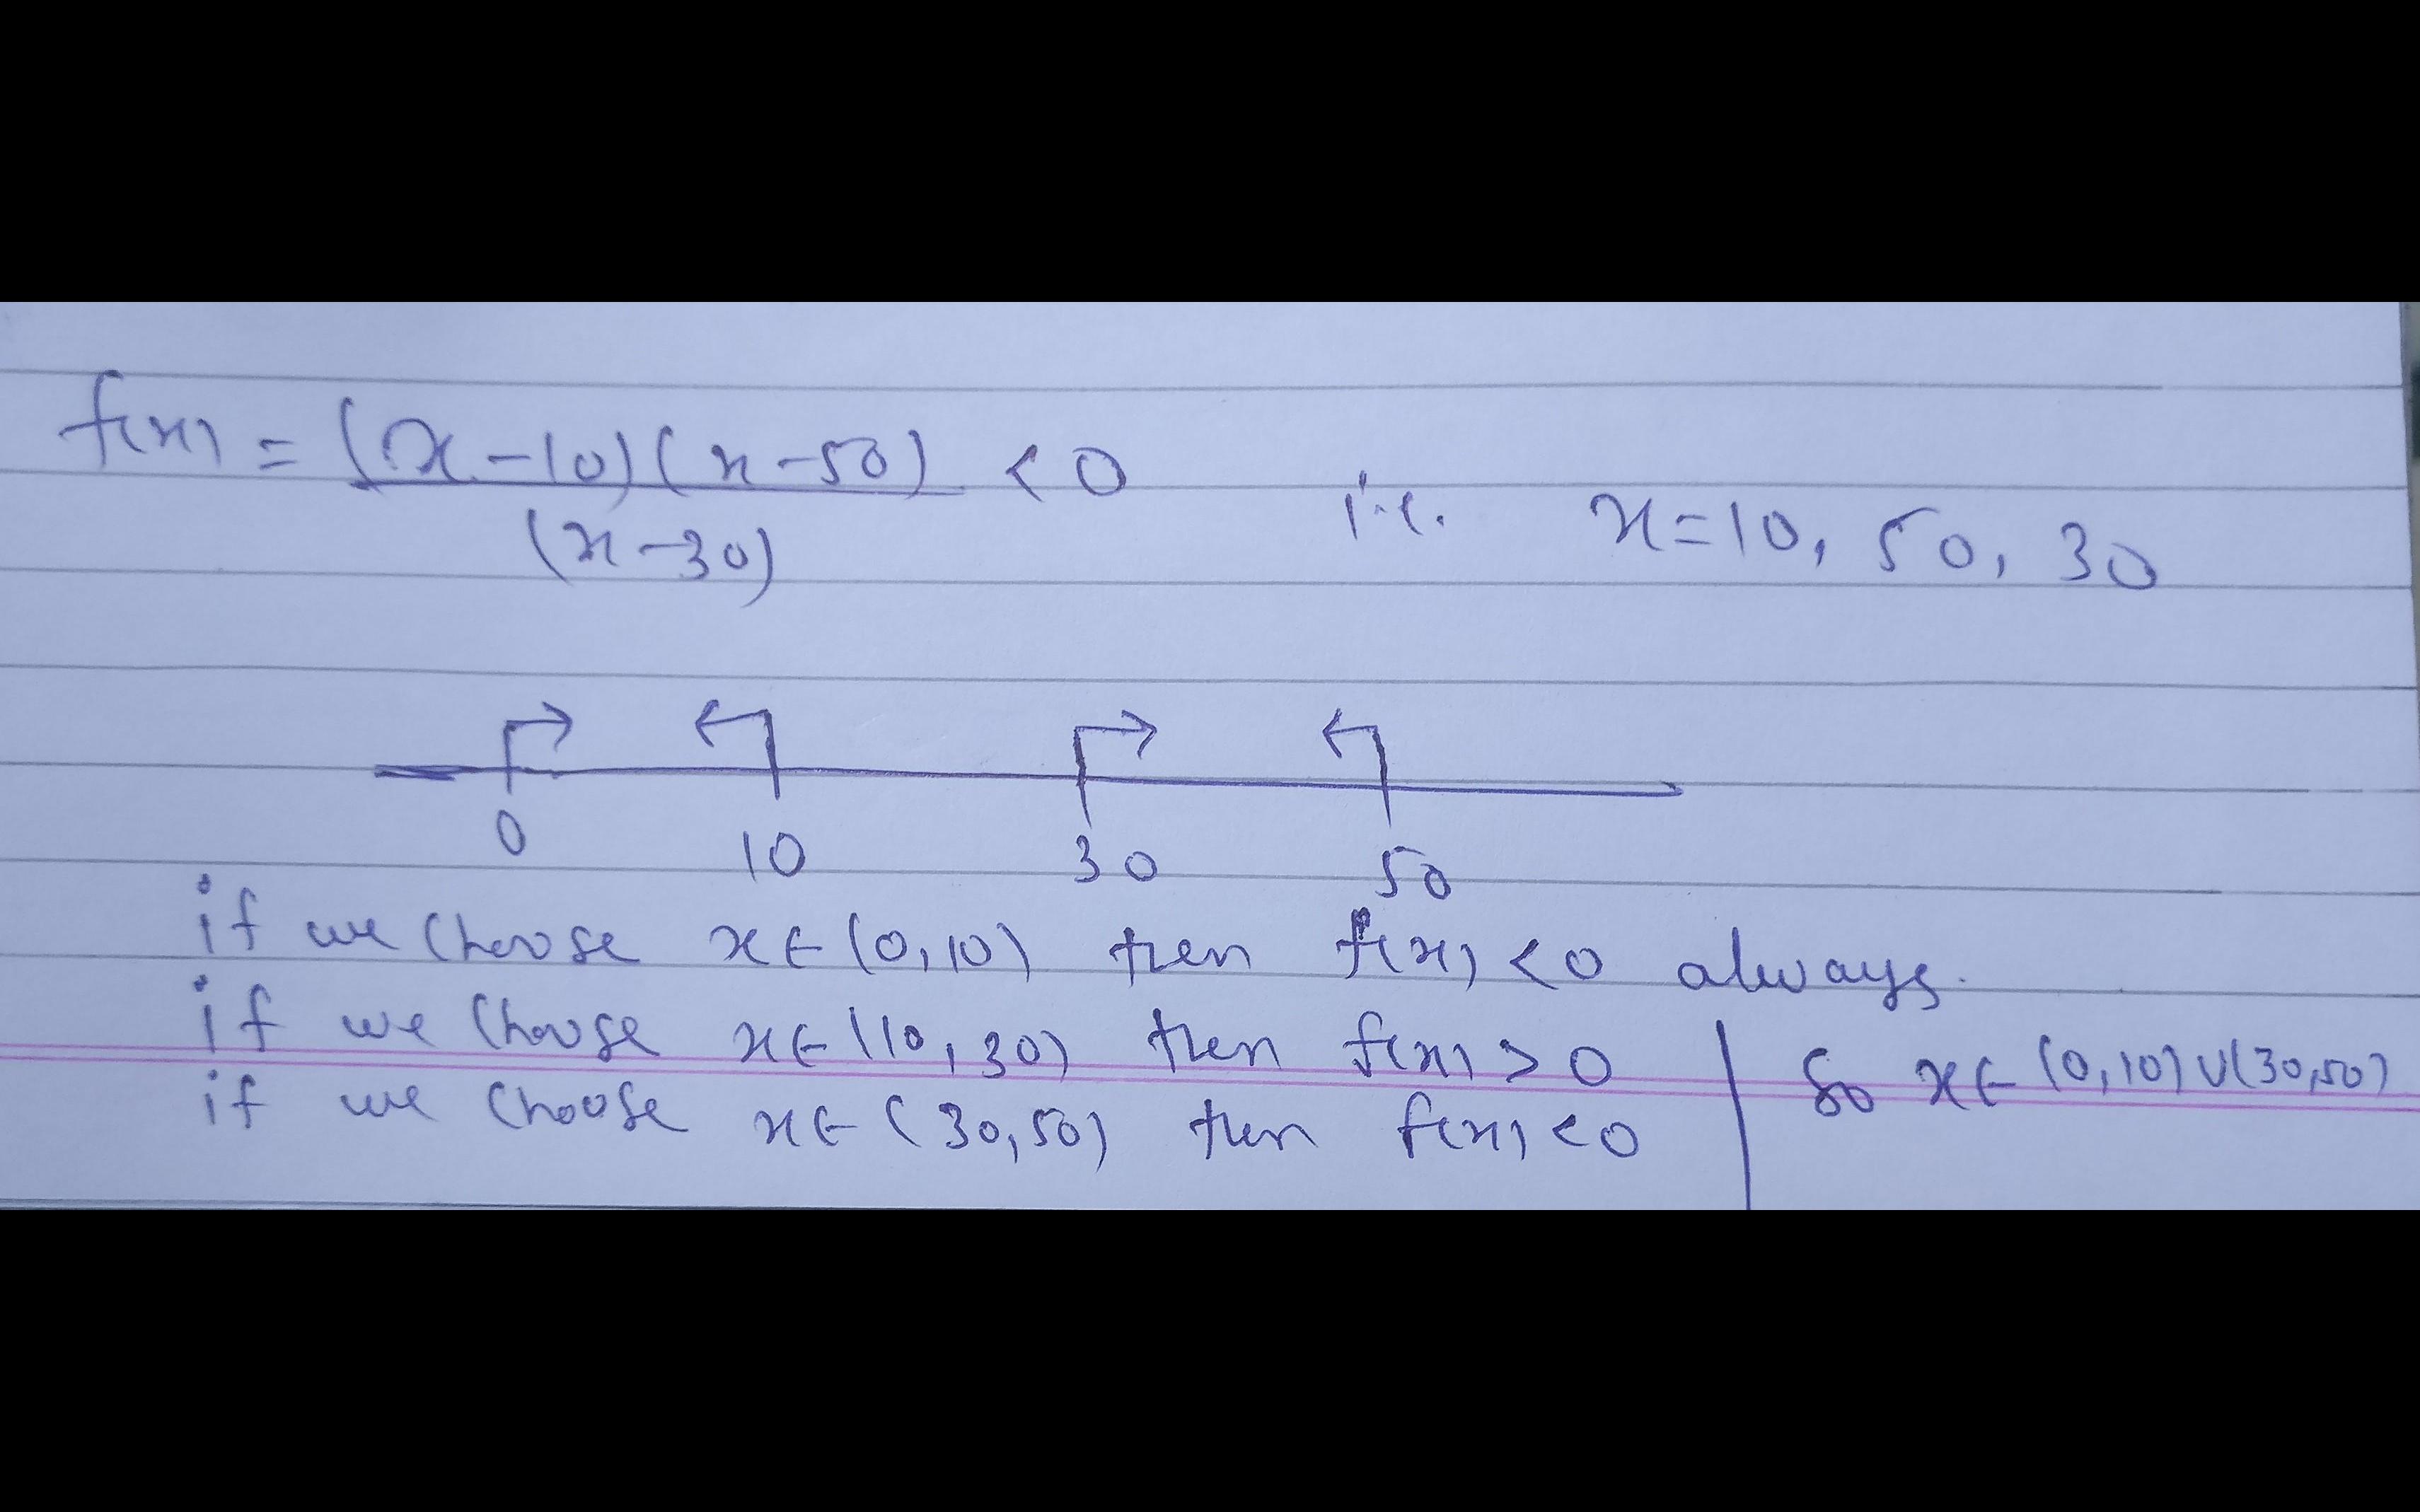 f(x) = (x-10)(x-50) < 0
(x-30)
i.e. x=10, 50, 30
0 10 30 50
if we choose x∈(0,10) then f(x) <0 always.
if we choose x∈(10,30) then f(x) > 0
if we choose x∈(30,50) then f(x) <0
So x∈(0,10)∪(30,50)